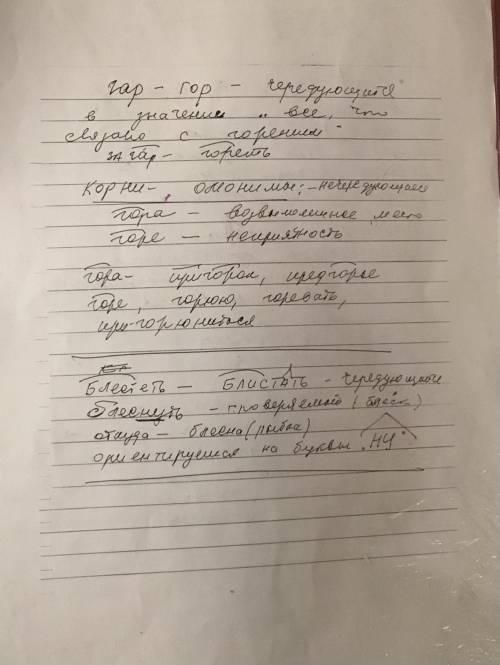 гар - гор - чередующиеся
в значении „ все, что
связано с горением"
загар - гореть
Корни - омонимы: - нечередующиеся
гора - возвышенное место
горе - неприятность
гора - пригорок, предгорье
горе, горюю, горевать,
пригорюниться
Блестеть - БЛИСТАТЬ - чередующиеся
блеснуть - проверяемой (блеск)
откуда - блесна (рыбка)
ориентируемся на буквы „НУ"